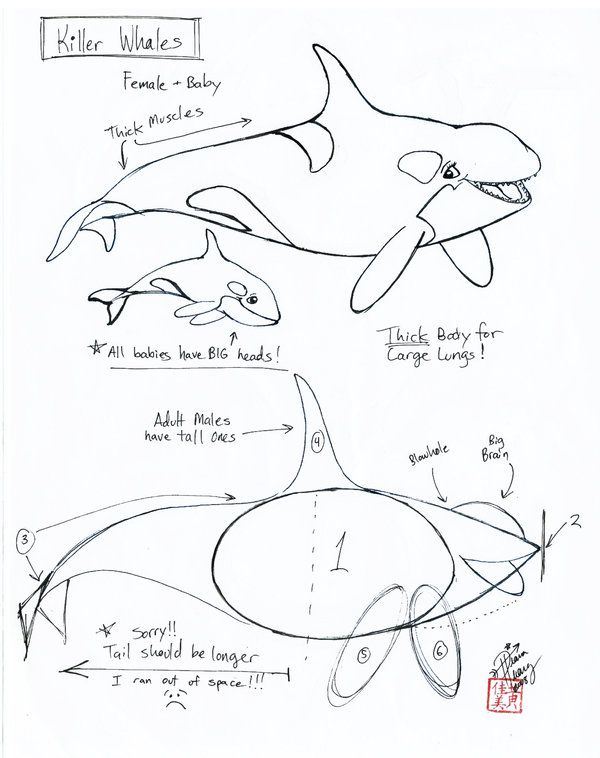 Killer Whales
Female + Baby
Thick Muscles
☆ All babies have BIG heads!
Thick Body for
Large Lungs!
Adult Males
have tall ones
4
Blowhole
Big
Brain
3
1
2
☆ Sorry!!
Tail should be longer
I ran out of space!!!
5
6
佳美